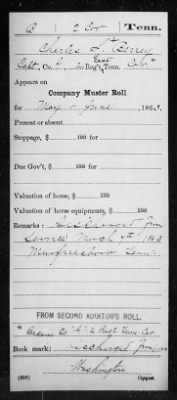 B 2 Cav Tenn.
Charles T. Berrey
Capt., Co. , 2 East Reg't, Tenn. Cav'y
Appears on
Company Muster Roll
for May & June, 1863.
Present or absent
Stoppage, $ 100 for
Due Gov't, $ 100 for
Valuation of horse, $ 100
Valuation of horse equipments, $ 100
Remarks: Dismissed from
Service March 9th 1863
Murfreesboro Tenn
FROM SECOND AUDITOR'S ROLL.
Became Co "A" 2 Reg't Tenn. Cav
Book mark: Dismissed from
Washington
(857) Copyist.